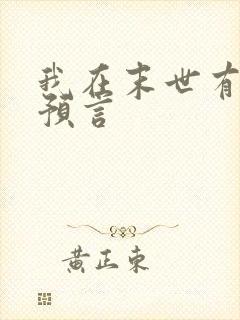 我在末世有
預言
黄正東